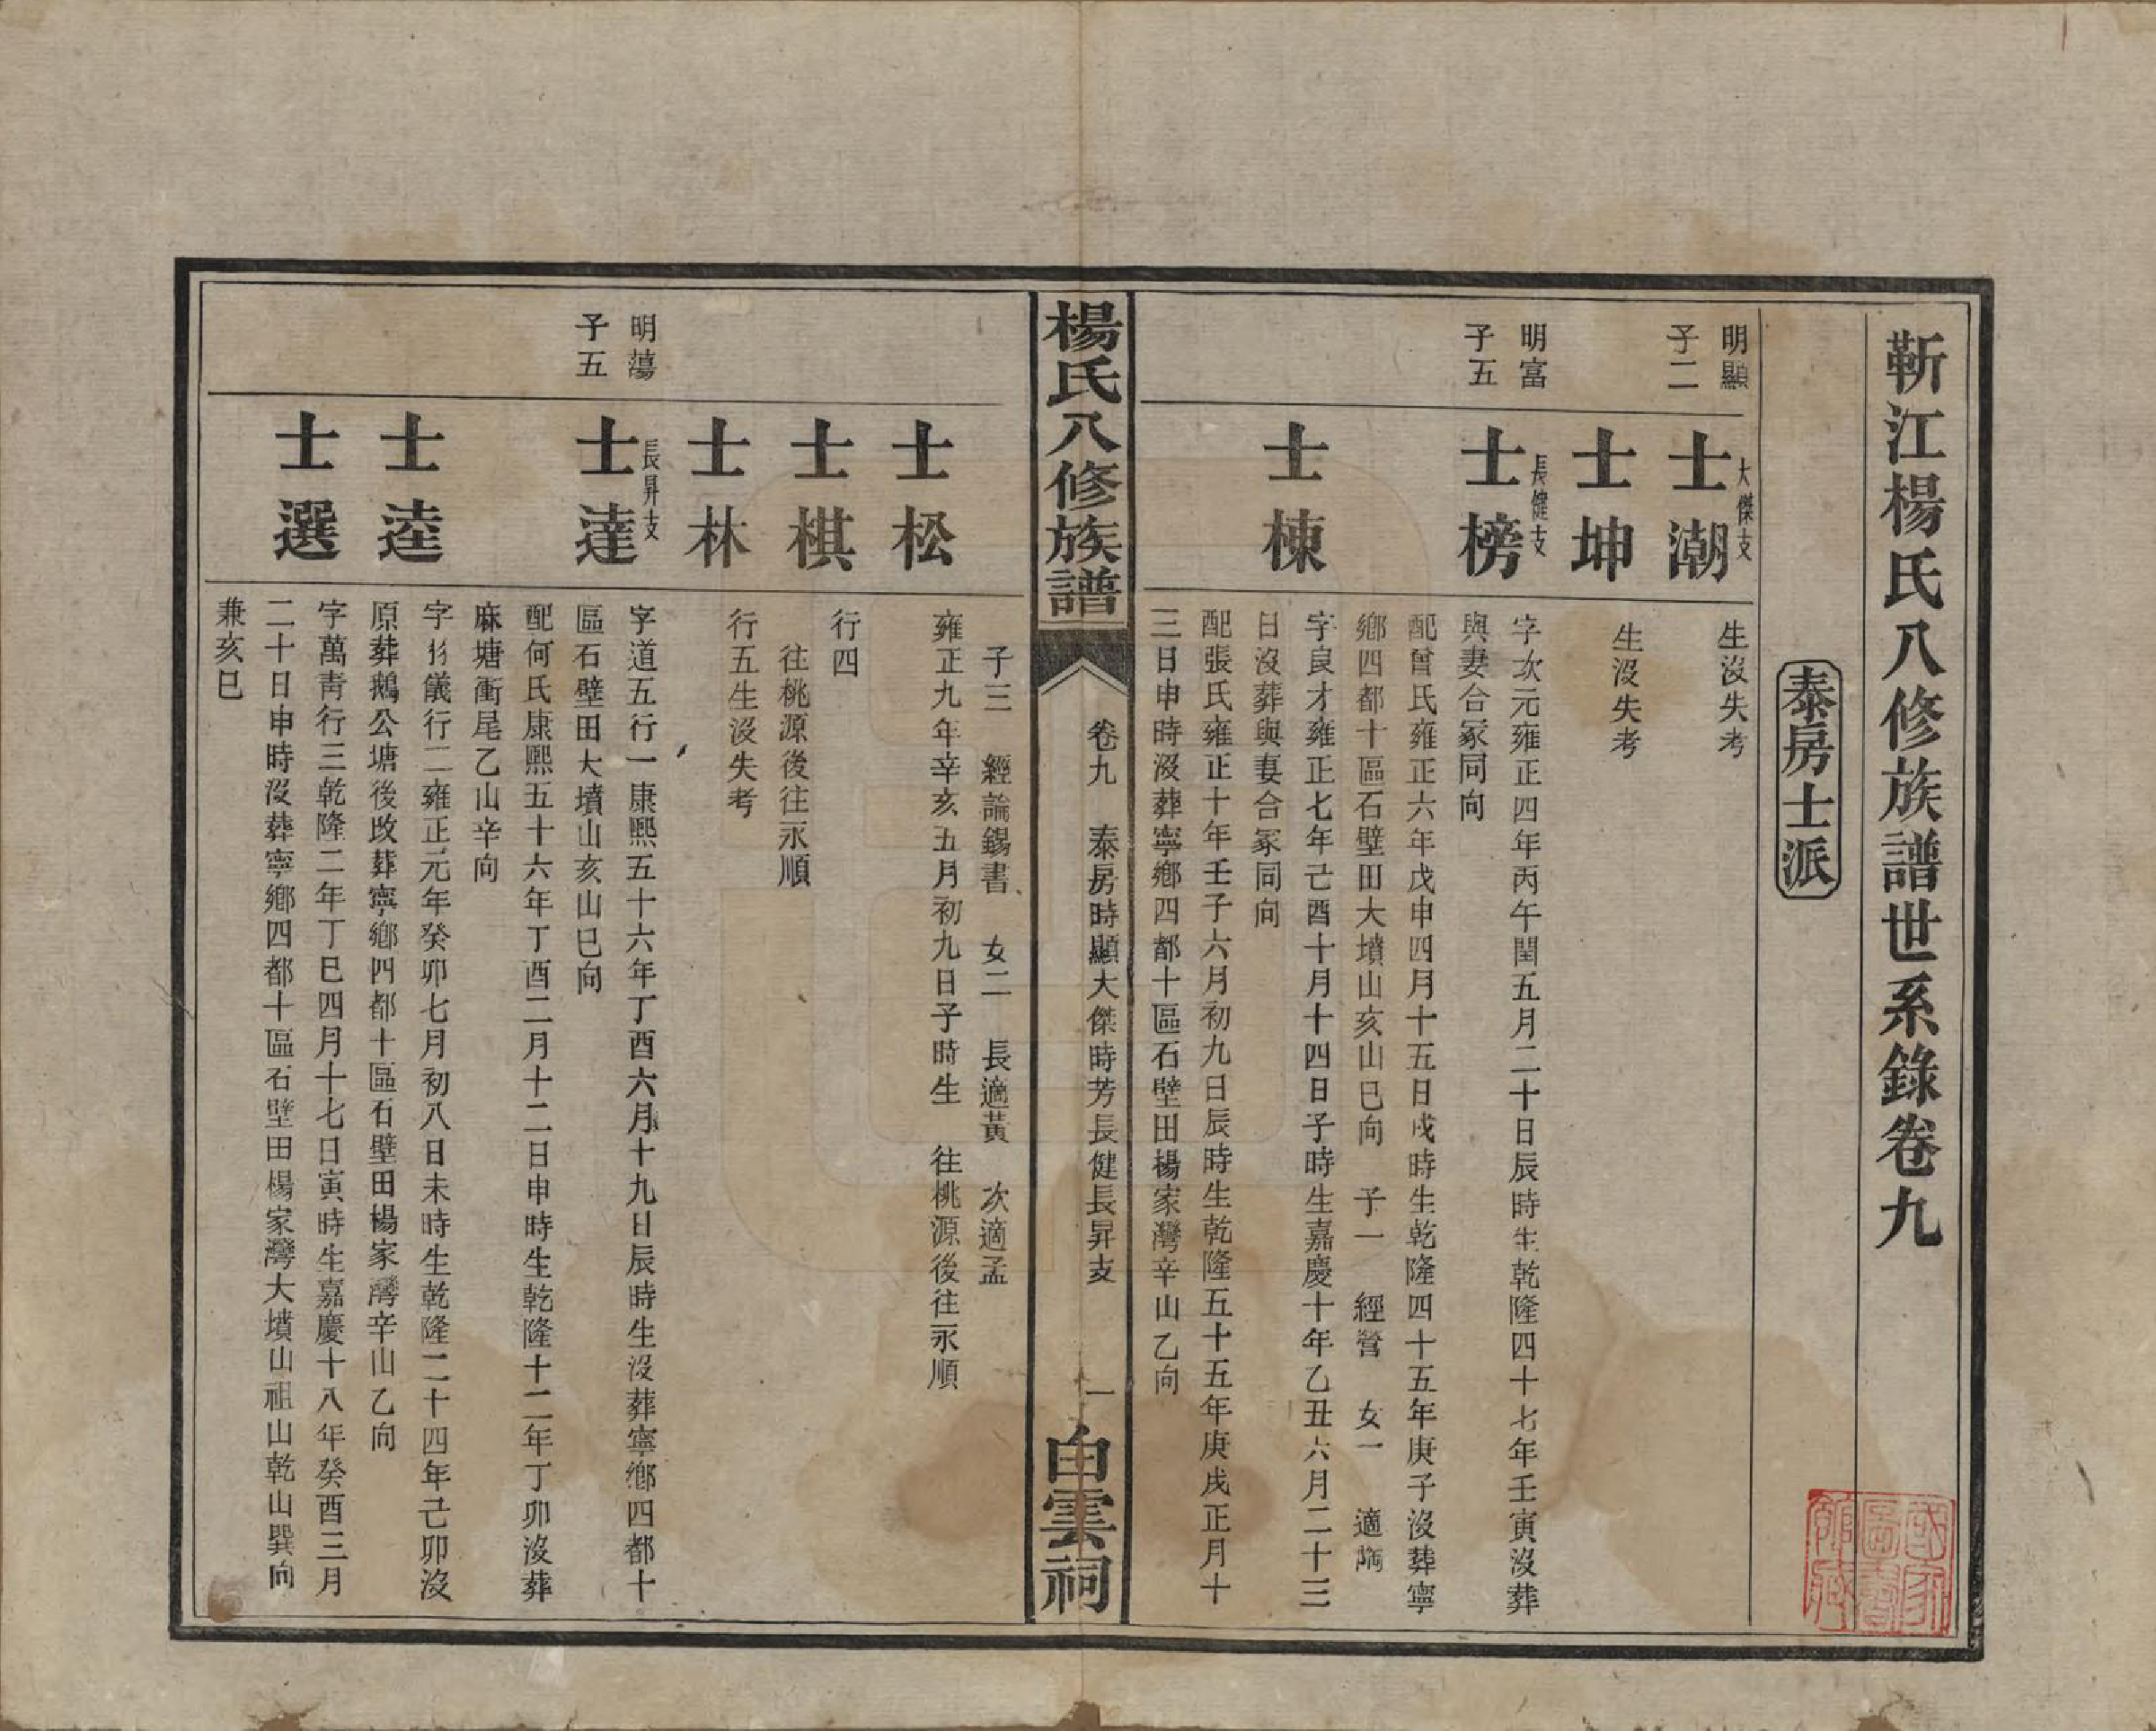 靳江楊氏八修族譜世系錄卷九
泰房士派
明顯
子二
大傑支
士潮
生沒失考
士坤
生沒失考
明富
子五
長健支
士榜
字次元雍正四年丙午閏五月二十日辰時生乾隆四十七年壬寅沒葬
與妻合冢同向
配曾氏雍正六年戊申四月十五日戌時生乾隆四十五年庚子沒葬寧
鄉四都十區石壁田大墳山亥山巳向 子一 經營 女一 適隋
士棟
字良才雍正七年己酉十月十四日子時生嘉慶十年乙丑六月二十三
日沒葬與妻合冢同向
配張氏雍正十年壬子六月初九日辰時生乾隆五十五年庚戌正月十
三日申時沒葬寧鄉四都十區石壁田楊家灣辛山乙向
楊氏八修族譜
卷九 泰房時顯大傑時芳長健長昇支
一
白雲祠
子三 經論錫書 女二 長適黃 次適孟
士松
雍正九年辛亥五月初九日子時生 往桃源後往永順
士棋
行四
往桃源後往永順
士林
行五生沒失考
明蕩
子五
長昇支
士達
字道五行一康熙五十六年丁酉六月十九日辰時生沒葬寧鄉四都十
區石壁田大墳山亥山巳向
配何氏康熙五十六年丁酉二月十二日申時生乾隆十二年丁卯沒葬
麻塘衝尾乙山辛向
士逵
字儀行二雍正元年癸卯七月初八日未時生乾隆二十四年己卯沒
原葬鵝公塘後改葬寧鄉四都十區石壁田楊家灣辛山乙向
士選
字萬青行三乾隆二年丁巳四月十七日寅時生嘉慶十八年癸酉三月
二十日申時沒葬寧鄉四都十區石壁田楊家灣大墳山祖山乾山巽向
兼亥巳
國家圖書館藏